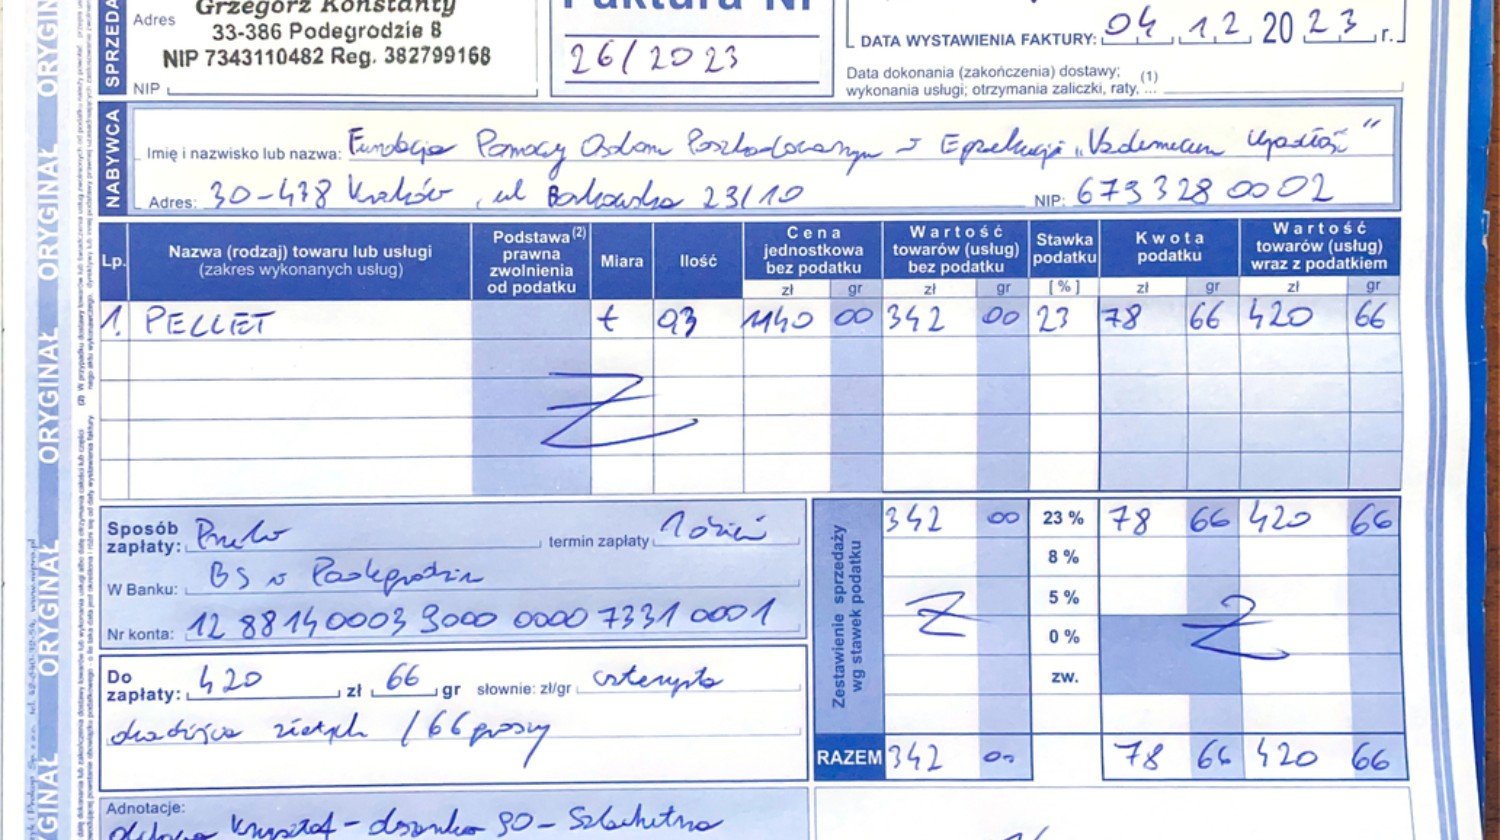 SPRZEDA
Grzegorz Konstanty
Adres
33-386 Podegrodzie 8
NIP 7343110482 Reg. 382799168
NIP
Faktura Nr
26/2023
DATA WYSTAWIENIA FAKTURY: 04 12 2023 r.
Data dokonania (zakończenia) dostawy;
wykonania usługi; otrzymania zaliczki, raty, ... (1)
NABYWCA
Imię i nazwisko lub nazwa: Fundacja Pomocy Osobom Poszkodowanym w Egzekucji „Vademecum
Adres: 30-438 Kraków, ul Borkowska 23/10
NIP: 673 328 00 02
Lp. Nazwa (rodzaj) towaru lub usługi (zakres wykonanych usług) Podstawa (2) prawna zwolnienia od podatku Miara Ilość Cena jednostkowa bez podatku Wartość towarów (usług) bez podatku Stawka podatku Kwota podatku Wartość towarów (usług) wraz z podatkiem
zł gr zł gr [%] zł gr zł gr
1. PELLET t 0,3 1140 00 342 00 23 78 66 420 66
Z
Sposób zapłaty: termin zapłaty 1 dzień
W Banku: BS w Podegrodziu
Nr konta: 12 8814 0003 3000 0000 7331 0001
Do zapłaty: 420 zł 66 gr słownie: zł/gr czterysta
dwadzieścia złotych / 66 groszy
Zestawienie sprzedaży wg stawek podatku
342 00 23 % 78 66 420 66
8 %
5 %
Z Z
0 %
zw.
RAZEM 342 00 78 66 420 66
Adnotacje:
Krysztof - 90 - Szlachetna
ORYGINAŁ ORYGINAŁ ORYGINAŁ ORYGINAŁ ORYGINAŁ